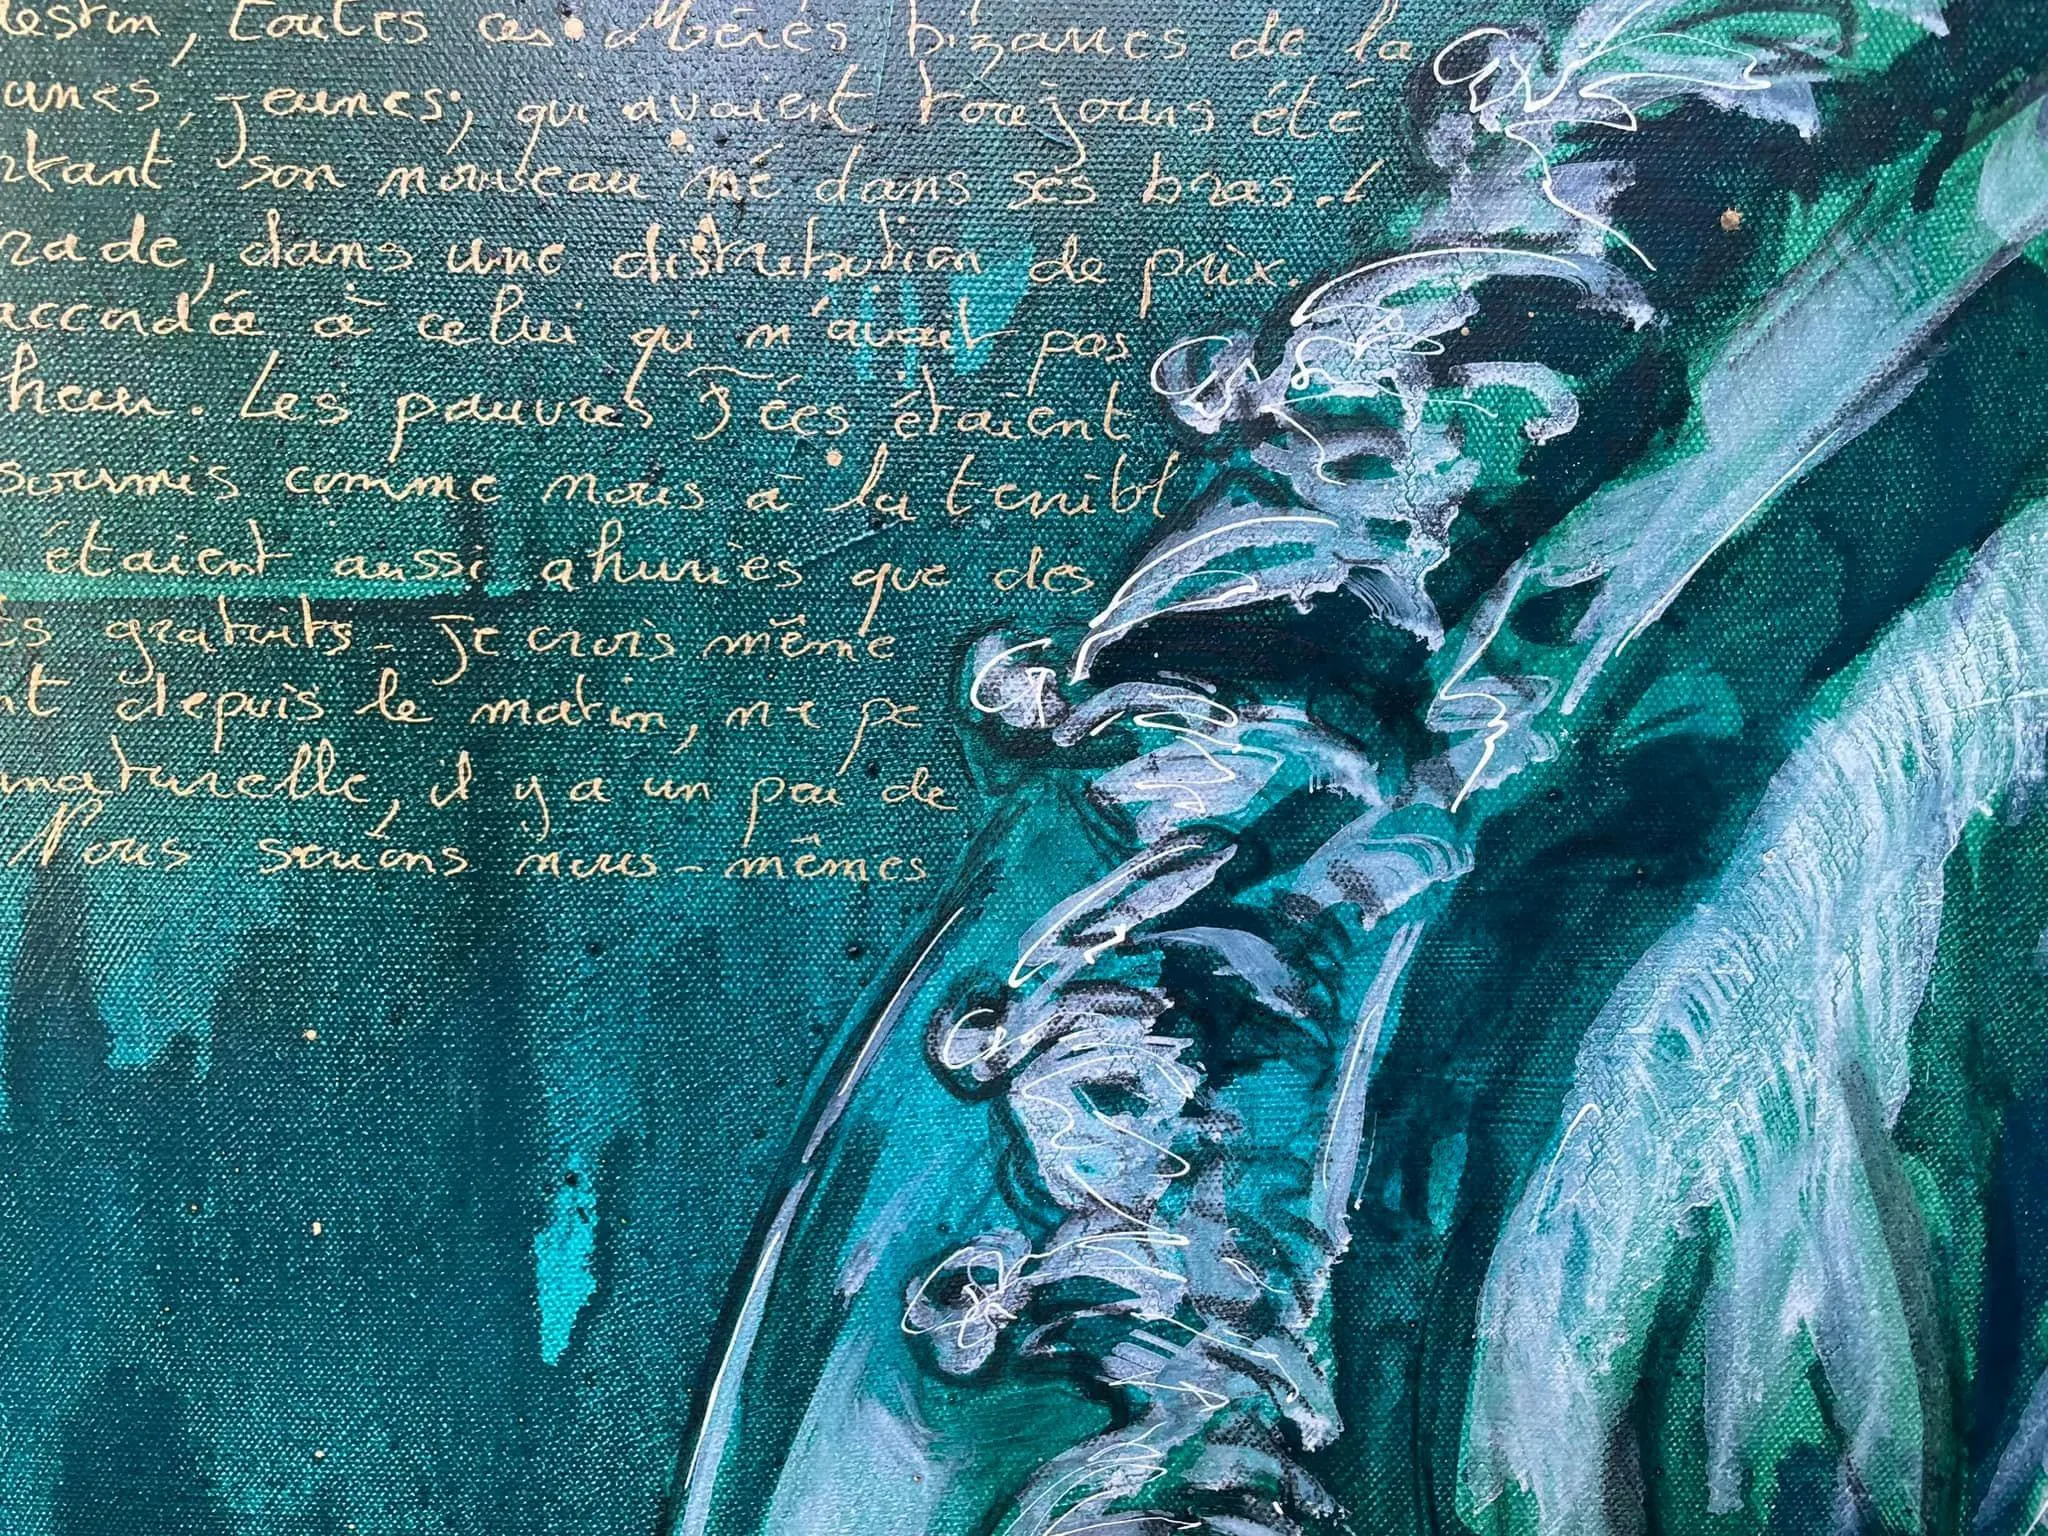 destin, toutes ces Mères bizarres de la
unes, jeunes, qui avaient toujours été
rtant son nouveau né dans ses bras.
rade, dans une distribution de prix.
accordée à celui qui n'avait pas
heur. Les pauvres Fées étaient
soumis comme nous à la terribl
étaient aussi ahuries que des
ts gratuits - Je crois même
nt depuis le matin, ne pe
naturelle, il y a un peu de
Nous serions nous-mêmes